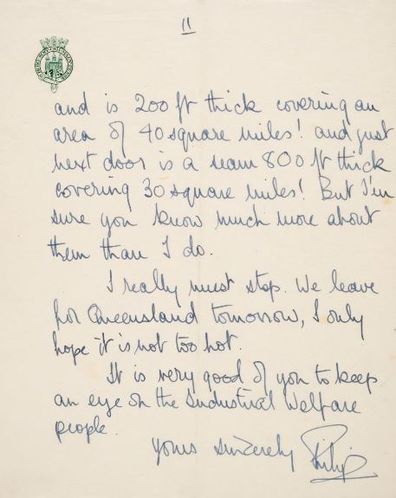 11
and is 200 ft thick covering an
area of 40 square miles! and just
next door is a seam 800 ft thick
covering 30 square miles! But I'm
sure you know much more about
them than I do.
I really must stop. We leave
for Queensland tomorrow, I only
hope it is not too hot.
It is very good of you to keep
an eye on the Industrial Welfare
people.
Yours sincerely Philip